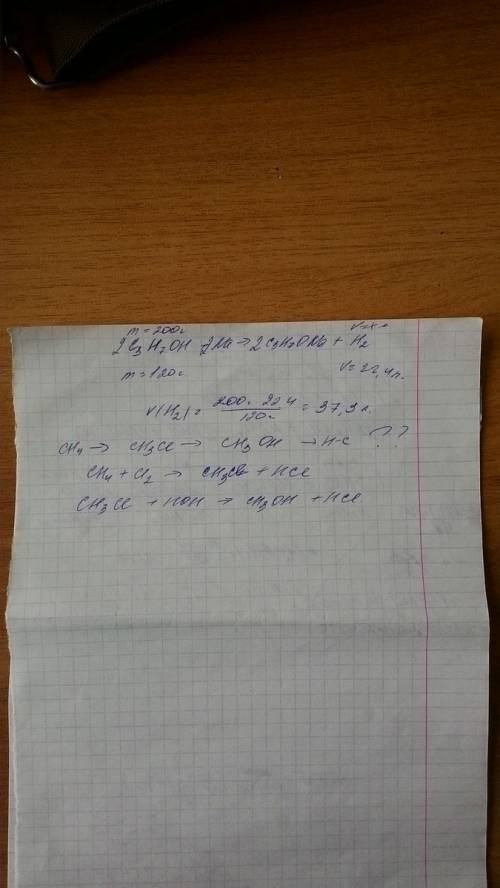 m = 200г V = х л
2C3H7OH + 2Na → 2C3H7ONa + H2
m = 120г V = 22,4л.
V(H2) = 200г · 22,4 / 120г = 37,3 л.
CH4 → CH3Cl → CH3OH → H-C ??
CH4 + Cl2 → CH3Cl + HCl
CH3Cl + HOH → CH3OH + HCl